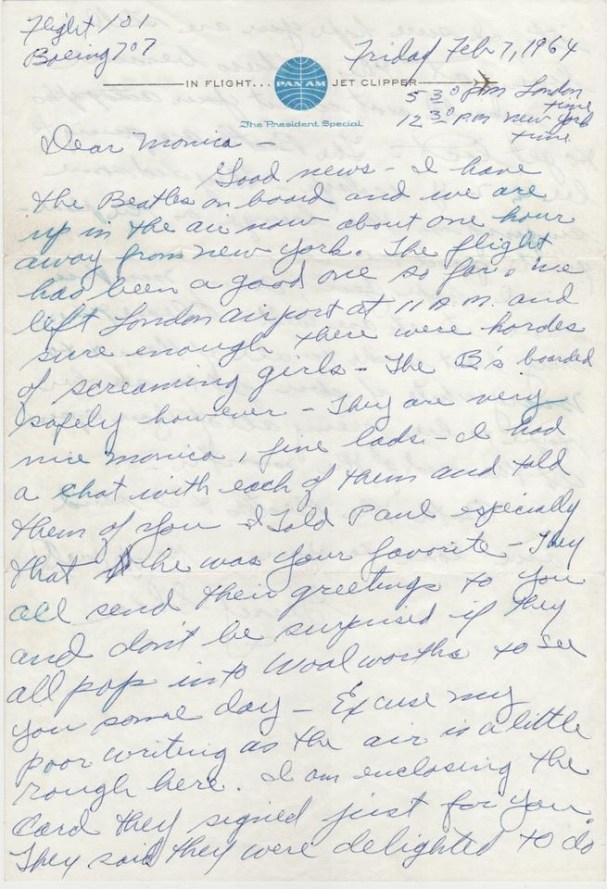 Flight 101
Boeing 707
Friday Feb 7, 1964
IN FLIGHT... PAN AM JET CLIPPER
The President Special
5 30 pm London
time
12 30 PM New York
time
Dear Monica -
Good news - I have
the Beatles on board and we are
up in the air now about one hour
away from New York. The flight
had been a good one so far. we
left London airport at 11 A.M. and
sure enough there were hordes
of screaming girls - The B's boarded
safely however - They are very
nice Monica, fine lads - I had
a chat with each of them and told
them of you I Told Paul especially
that he was your favorite - They
all send their greetings to you
and don't be surprised if they
all pop into Woolworths to see
you some day - Excuse my
poor writing as the air is a little
rough here. I am enclosing the
Card they signed just for you.
They said they were delighted to do